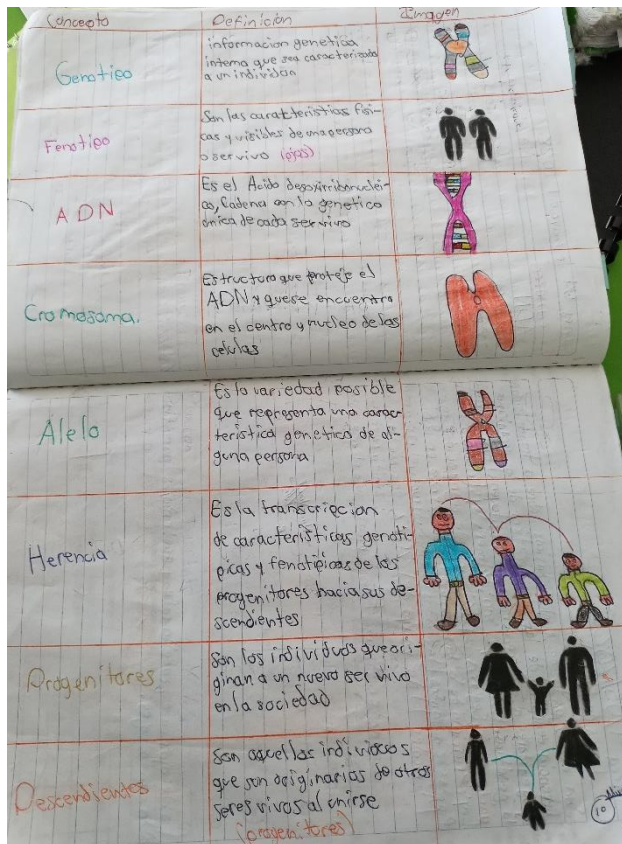 Concepto Definición Imagen
Genotipo
informacion genetica
interna que sea caracterizada
a un individuo
Fenotipo
Son las caracteristias físi-
cas y visibles de una persona
o ser vivo (ojos)
ADN
Es el Acido desoxirribonucléi-
co, Cadena con lo genetico
única de cada ser vivo
Cromosoma.
Estructura que proteje el
ADN y que se encuentra
en el centro y nucleo de las
celulas
Alelo
Es la variedad posible
que representa una carac-
terística genetica de al-
guna persona
Herencia
Es la transcripcion
de características genotí-
picas y fenotípicas de los
progenitores hacia sus de-
scendientes
Progenitores
Son los individuos que ori-
ginan a un nuevo ser vivo
en la sociedad
Descendientes
Son aquellos individuos
que son originarios de otros
seres vivos al unirse
(progenitores)
10